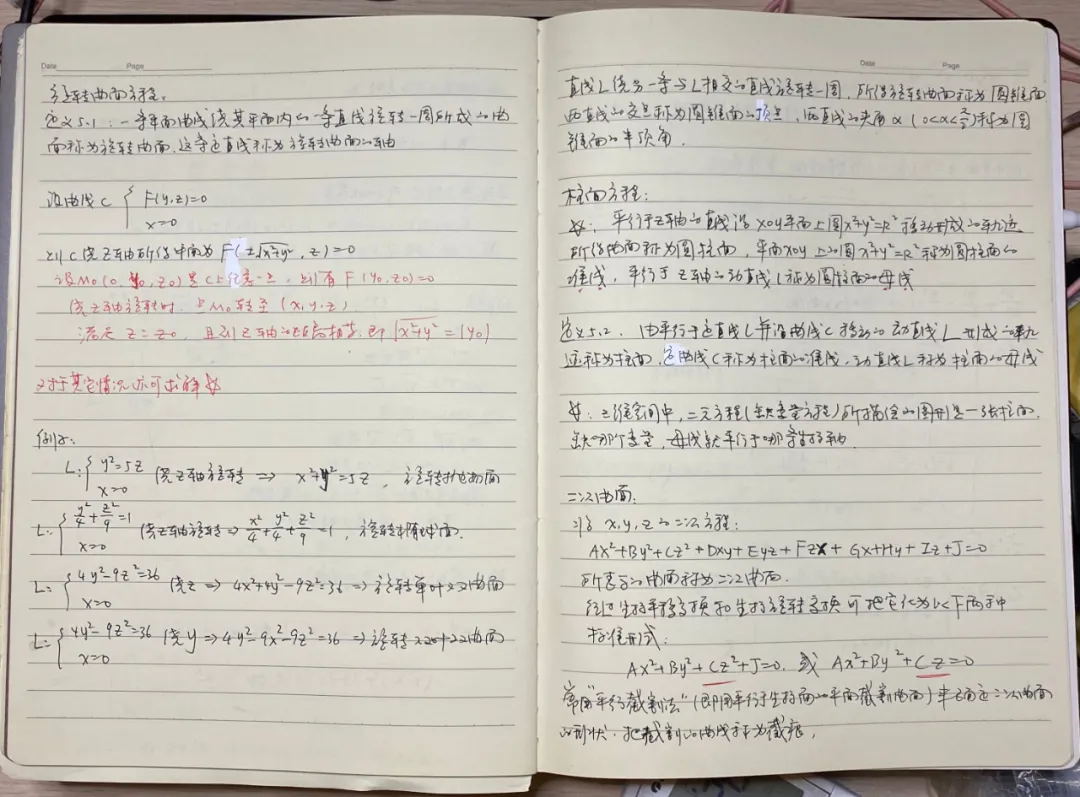 Date Page
旋转曲面方程.
定义5.1: 一条平面曲线绕其平面内的一条直线旋转一周所成的曲
面称为旋转曲面.这条定直线称为旋转曲面的轴
设曲线C { F(y,z)=0
x=0
则C绕Z轴所得曲面为 F(±√x²+y², z)=0
设M₀(0, y₀, z₀)是C上任意一点, 则有 F(y₀,z₀)=0
绕Z轴旋转时, 点M₀转至(x,y,z)
满足 z=z₀, 且到Z轴的距离相等,即√x²+y²=|y₀|
对于其它情况亦可求解
例:
L:{ y²=5z
x=0
绕Z轴旋转 ⇒ x²+y²=5z, 旋转抛物面
L:{ y²/4+z²/9=1
x=0
绕Z轴旋转⇒ x²/4+y²/4+z²/9=1, 旋转椭球面.
L:{ 4y²-9z²=36
x=0
绕z ⇒ 4x²+4y²-9z²=36 ⇒ 旋转单叶双曲面
L:{ 4y²-9z²=36
x=0
绕y ⇒ 4y²-9x²-9z²=36 ⇒ 旋转双叶双曲面
Date Page
直线L绕另一条与L相交的直线旋转一周, 所得旋转曲面称为圆锥面
两直线的交点称为圆锥面的顶点, 两直线的夹角α(0<α<π/2)称为圆
锥面的半顶角.
柱面方程:
平行于Z轴的直线沿xoy平面上圆x²+y²=R²移动形成的轨迹
所得曲面称为圆柱面, 平面xoy上的圆x²+y²=R²称为圆柱面的
准线, 平行于Z轴的动直线L称为圆柱面的母线
定义5.2. 由平行于定直线L并沿曲线C移动的动直线L形成的轨
迹称为柱面,定曲线C称为柱面的准线,动直线L称为柱面的母线
三维空间中, 二元方程(缺变量方程)所描绘的图形是一张柱面.
缺哪个变量, 母线就平行于哪条坐标轴.
二次曲面.
x,y,z的二次方程:
Ax²+By²+Cz²+Dxy+Eyz+Fzx+Gx+Hy+Iz+J=0
所表示的曲面称为二次曲面.
经过坐标平移变换和坐标旋转变换可把它化为以下两种
标准形式:
Ax²+By²+Cz²+J=0. 或 Ax²+By²+Cz=0
常用"平行截割法"(即用平行于坐标面的平面截割曲面)来确定二次曲面
的形状. 把截割的曲线称为截痕,